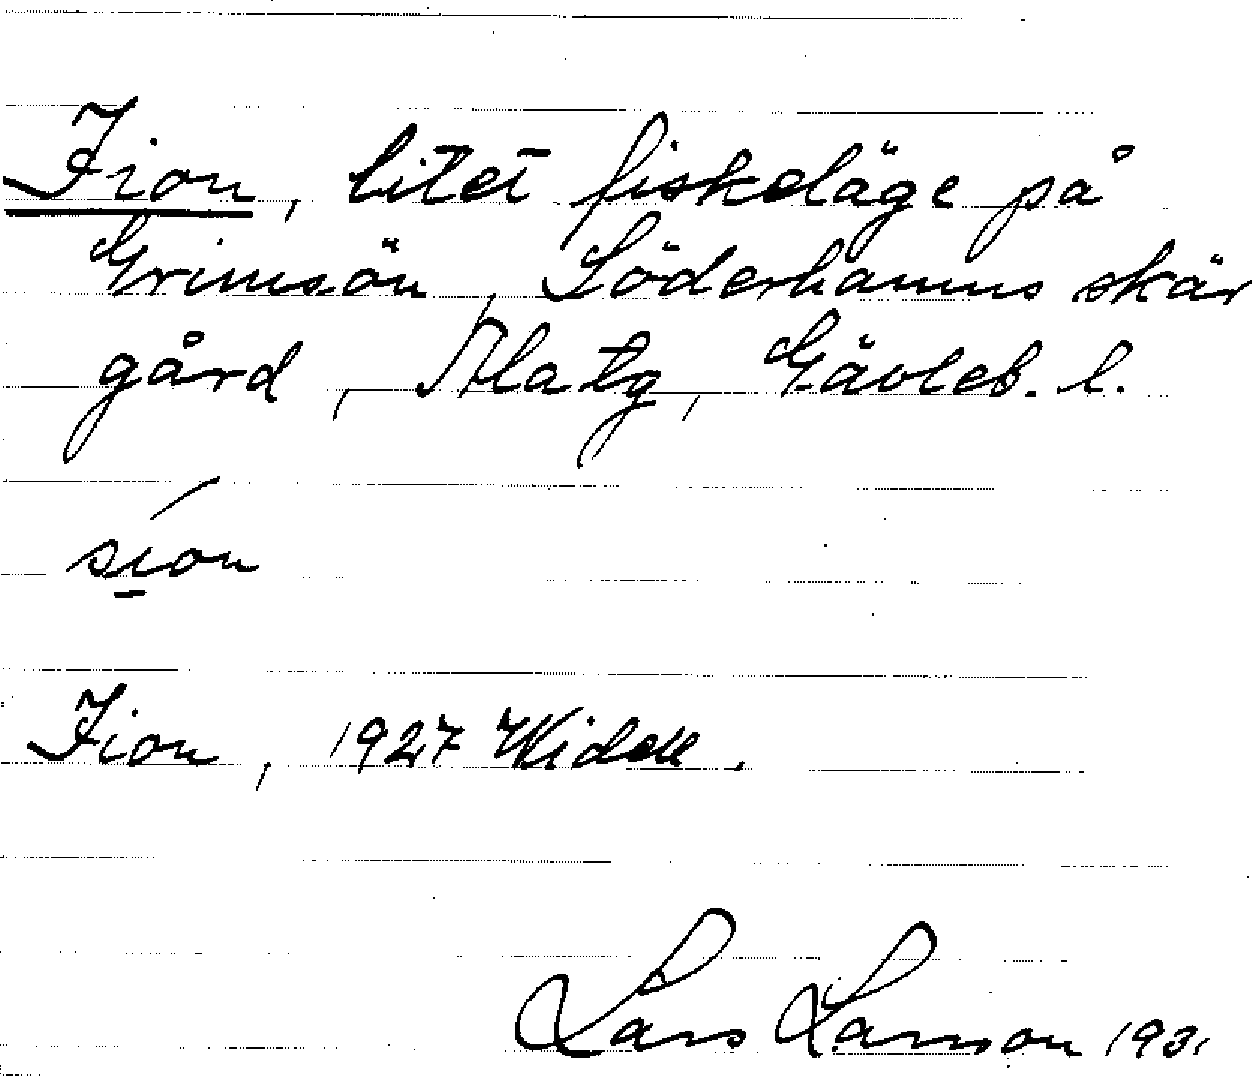 Zion, litet fiskeläge på
Grimsön, Söderhamns skär
gård, Ala tg, Gävleb. l.
síon
Zion, 1927 Widell.
Lars Larson 1931